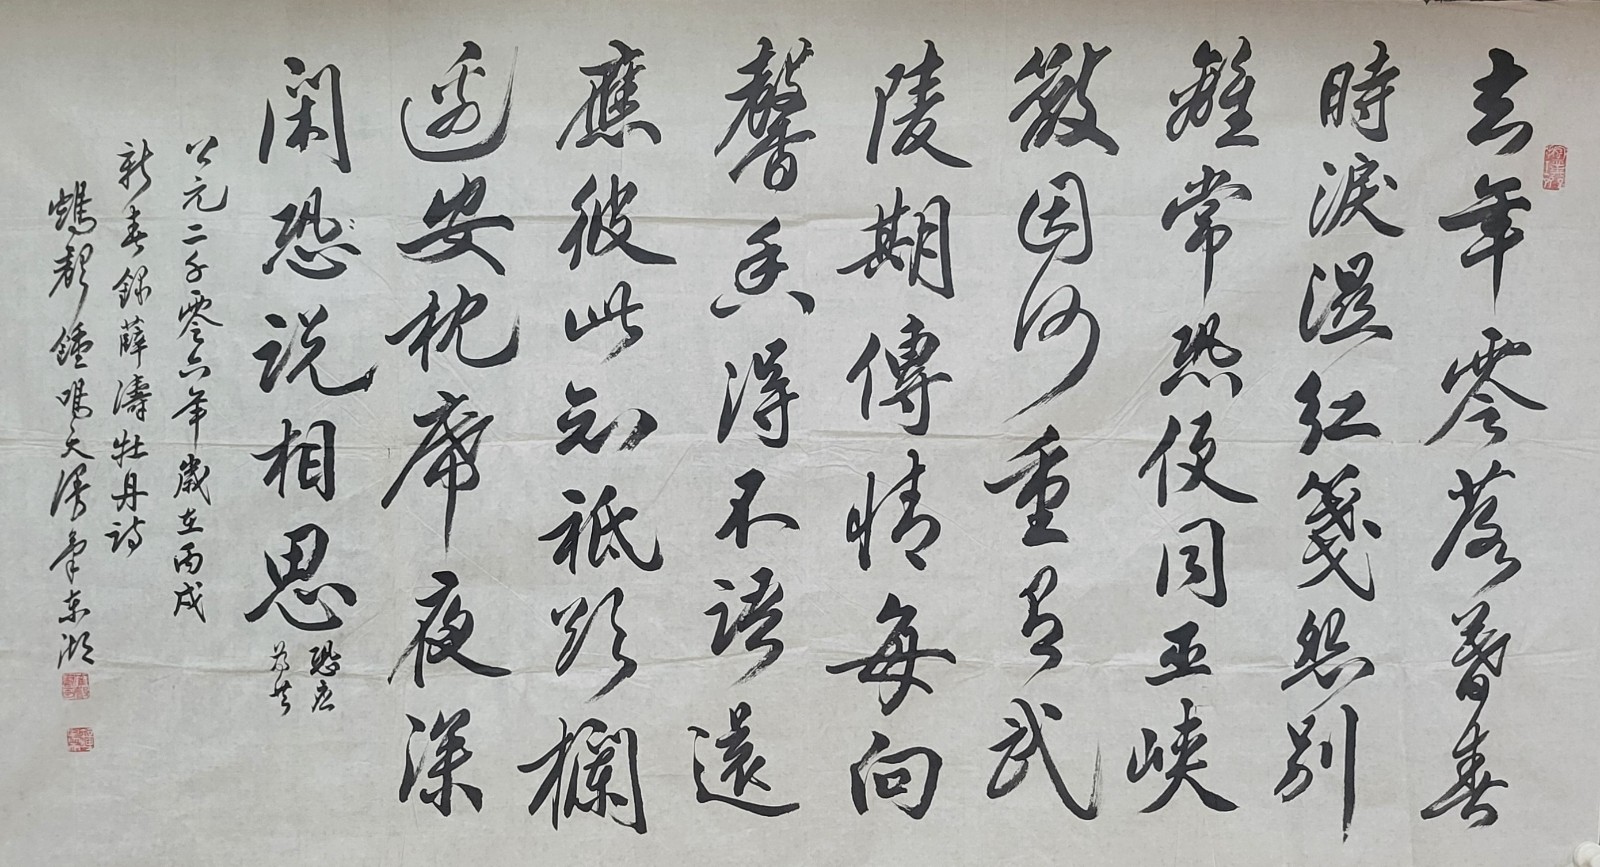 去年零落暮春
時淚濕紅箋怨別
離常恐便同巫峽
散因何重有武
陵期傳情每向
馨香得不語還
應彼此知祗欲欄
邊安枕席夜深
闲恐说相思
恐应
为共
公元二千零六年歲在丙戌
新春錄薛濤牡丹詩
鍾鳴漫筆東湖